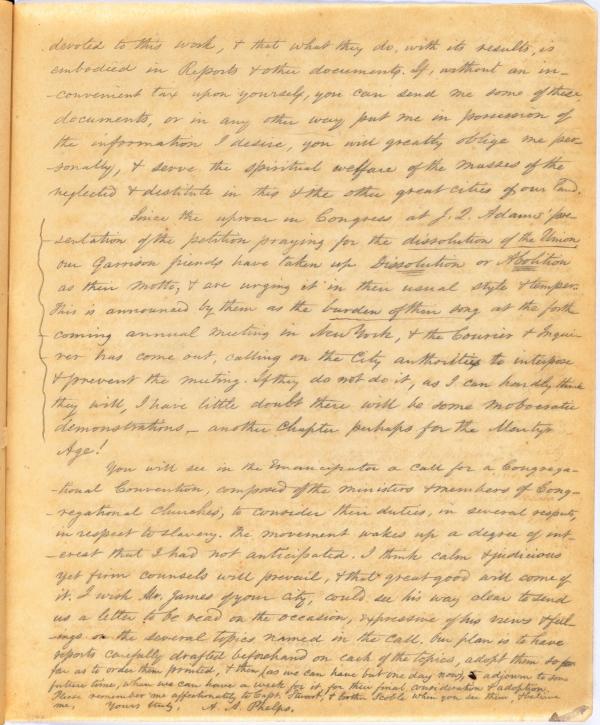 devoted to this work, & that what they do, with its results, is
embodied in Reports & other documents. If, without an in-
-convenient tax upon yourself, you can send me some of these
documents, or in any other way put me in possession of
the information I desire, you will greatly oblige me per-
sonally, & serve the spiritual welfare of the masses of the
neglected & destitute in this & the other great cities of our land.
Since the uproar in Congress at J. Q. Adams' pre-
sentation of the petition praying for the dissolution of the Union
our Garrison friends have taken up Dissolution or Abolition
as their motto, & are urging it in their usual style & temper.
This is announced by them as the burden of their song at the forth
coming annual meeting in New York, & the Courier & Enqui-
rer has come out, calling on the City authorities to interpose
& prevent the meeting. If they do not do it, as I can hardly think
they will, I have little doubt there will be some mobocratic
demonstrations – another Chapter perhaps for the Martyr
Age!
You will see in the Emancipator a call for a Congrega-
-tional Convention, composed of the ministers & members of Cong-
-regational Churches, to consider their duties, in several respects,
in respect to slavery. The movement wakes up a degree of int-
-erest that I had not anticipated. I think calm & judicious
yet firm counsels will prevail, & that great good will come of
it. I wish Mr. James of your city, could see his way clear to send
us a letter to be read on the occasion, expressive of his views & feel-
-ings on the several topics named in the call. Our plan is to have
reports carefully drafted beforehand on each of the topics, adopt them so far
far as to order them printed, & then (as we can have but one day now) adjourn to some
future time, when we can have a week for it, for their final consideration & adoption.
Please remember me affectionately to Capt. Stuart, & brother Scoble when you see them, & believe
me, Yours truly, A. A. Phelps.